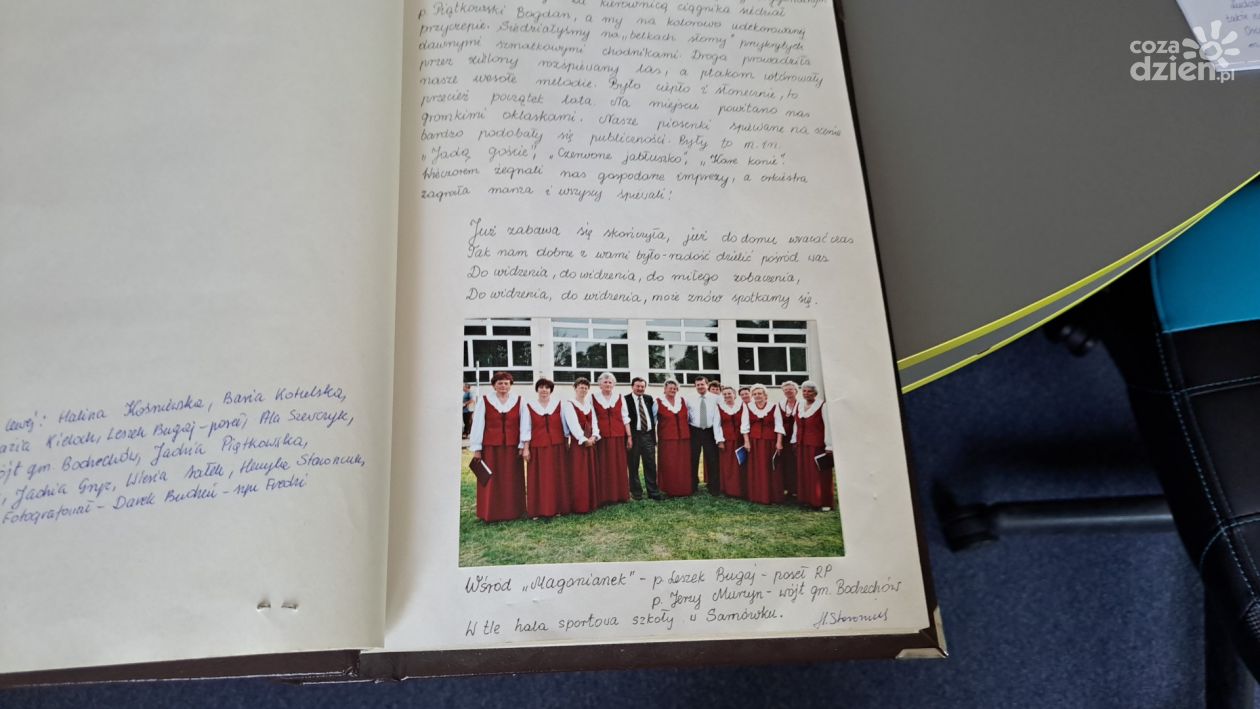 lewej: Halina Kośmińska, Basia Kotulska,
Kieloch, Leszek Bugaj - poseł, Ala Szewczyk,
wójt gm. Bodzechów, Jadzia Piątkowska,
Jadzia Gryz, Wiesia Sałek, Henryka Staroniek,
Fotografował - Darek Bucheń - syn Fredzi
kierownicą ciągnika siedział
p. Piątkowski Bogdan, a my na kolorowo udekorowanej
przyczepie. Siedziałyśmy na „belkach słomy” przykrytych
dawnymi szmatkowymi chodnikami. Droga prowadziła
przez zielony rozśpiewany las, a ptakom wtórowały
nasze wesołe melodie. Było ciepło i słonecznie, to
przecież początek lata. Na miejscu powitano nas
gromkimi oklaskami. Nasze piosenki śpiewane na scenie
bardzo podobały się publiczności. Były to m.in.
„Jadą goście”, „Czerwone jabłuszko”, „Kare konie”.
Wieczorem żegnali nas gospodarze imprezy, a orkiestra
zagrała marsza i wszyscy śpiewali:
Już zabawa się skończyła, już do domu wracać czas
Tak nam dobrze z wami było - radość dzielić pośród was
Do widzenia, do widzenia, do miłego zobaczenia,
Do widzenia, do widzenia, może znów spotkamy się.
Wśród „Magonianek” - p. Leszek Bugaj - poseł RP
p. Jerzy Murzyn - wójt gm. Bodzechów
W tle hala sportowa szkoły w Sarnówku.
coza
dzien.pl